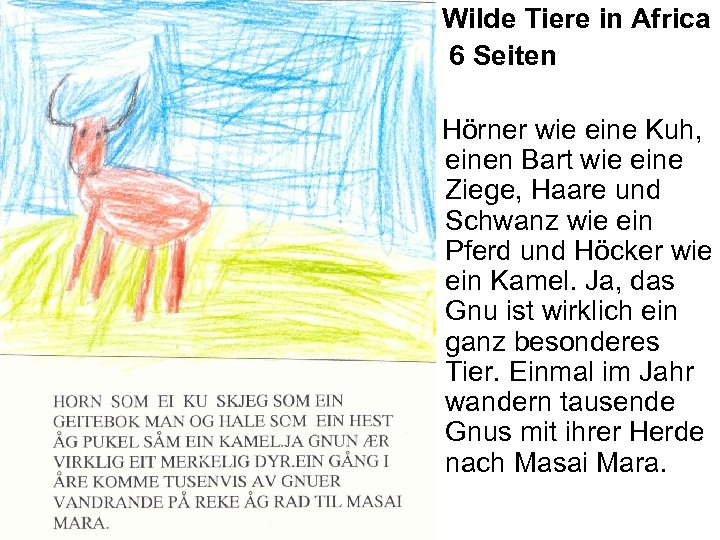 Wilde Tiere in Africa
6 Seiten
Hörner wie eine Kuh,
einen Bart wie eine
Ziege, Haare und
Schwanz wie ein
Pferd und Höcker wie
ein Kamel. Ja, das
Gnu ist wirklich ein
ganz besonderes
Tier. Einmal im Jahr
wandern tausende
Gnus mit ihrer Herde
nach Masai Mara.
HORN SOM EI KU SKJEG SOM EIN
GEITEBOK MAN OG HALE SOM EIN HEST
ÅG PUKEL SÅM EIN KAMEL.JA GNUN ÆR
VIRKLIG EIT MERKELIG DYR.EIN GÅNG I
ÅRE KOMME TUSENVIS AV GNUER
VANDRANDE PÅ REKE ÅG RAD TIL MASAI
MARA.